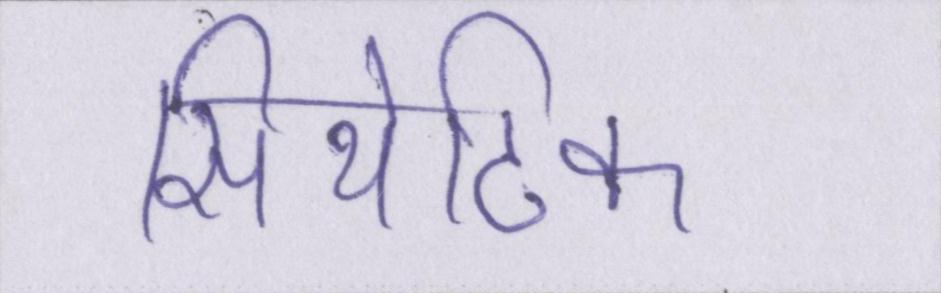 सिथेटिक